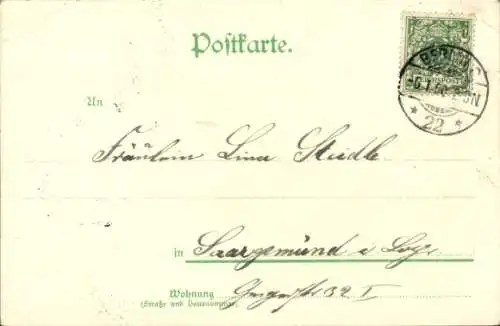 Postkarte.
BERLIN
22
An
Fräulein Lina Steidle
in Saargemünd i. Logr.
Wohnung 32 I
(Straße und Hausnummer)